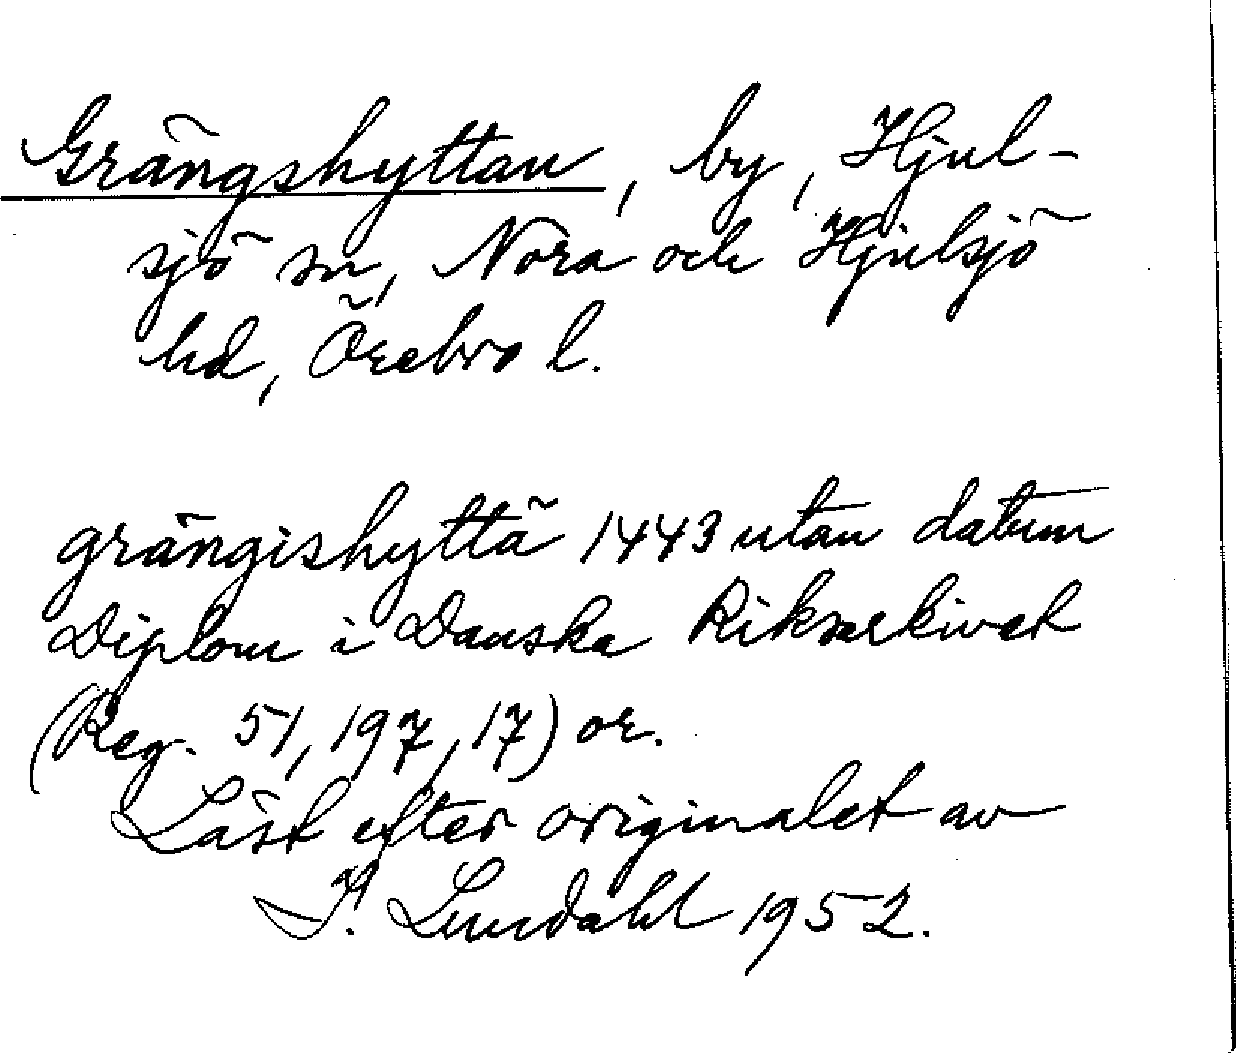 Grängshyttan, by, Hjul-
sjö sn, Nora och Hjulsjö
hd, Örebro l.
grängishyttã 1443 utan datum
Diplom i Danska Riksarkivet
(Reg. 51, 197, 17) or.
Läst efter originalet av
I. Lundahl 1952.